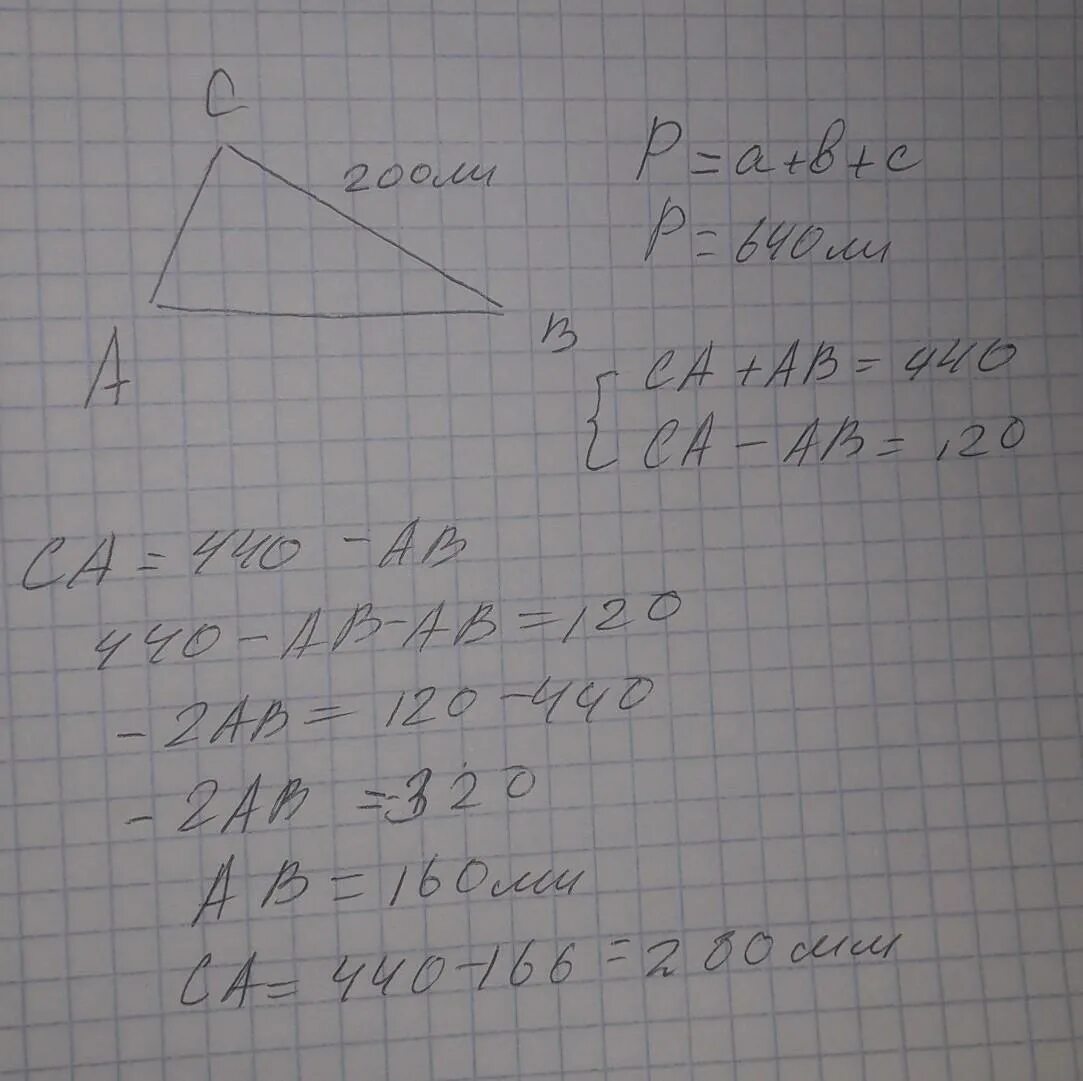 C
200мм
P = a + b + c
P = 640мм
A
B
{ CA + AB = 440
CA - AB = 120
CA = 440 - AB
440 - AB - AB = 120
- 2AB = 120 - 440
- 2AB = -320
AB = 160мм
CA = 440 - 166 = 280мм